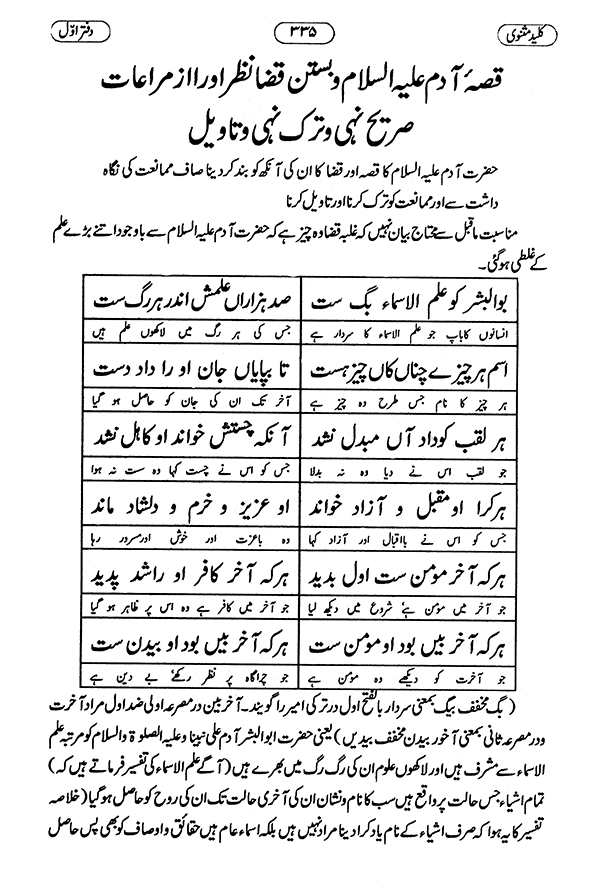 کلید مثنوی
۳۳۵
دفتر اوّل
قصۂ آدم علیہ السلام و بستن قضا نظر او را از مراعات
صریح نہی و ترک نہی و تاویل
حضرت آدم علیہ السلام کا قصہ اور قضا کا ان کی آنکھ کو بند کر دینا صاف ممانعت کی نگاہ
داشت سے اور ممانعت کو ترک کرنا اور تاویل کرنا
مناسبت ماقبل سے محتاج بیان نہیں کہ غلبۂ قضا وہ چیز ہے کہ حضرت آدم علیہ السلام سے باوجود اتنے بڑے علم
کے غلطی ہوگئی۔
بوالبشر کو علم الاسماء بگ ست صد ہزاراں علمش اندر ہر رگ ست
انسانوں کا باپ جو علم الاسماء کا سردار ہے جس کی ہر رگ میں لاکھوں علم ہیں
اسم ہر چیزے چناں کاں چیز ہست تا بپایاں جان او را داد دست
ہر چیز کا نام جس طرح وہ چیز ہے آخر تک ان کی جان کو حاصل ہو گیا
ہر لقب کو داد آں مبدل نشد آنکہ چستش خواند او کاہل نشد
جو لقب اس نے دیا وہ نہ بدلا جس کو اس نے چست کہا وہ ست نہ ہوا
ہر کرا او مقبل و آزاد خواند او عزیز و خرم و دلشاد ماند
جس کو اس نے بااقبال اور آزاد کہا وہ باعزت اور خوش اور مسرور رہا
ہر کہ آخر مومن ست اول بدید ہر کہ آخر کافر او را شد پدید
جو آخر میں مؤمن ہے شروع میں دیکھ لیا جو آخر میں کافر ہے وہ اس پر ظاہر ہو گیا
ہر کہ آخر بیں بود او مومن ست ہر کہ آخر بیں بود او بیدن ست
جو آخرت کو دیکھے وہ مومن ہے جو چراگاہ پر نظر رکھے بے دین ہے
(بگ مخفف بیگ بمعنی سردار بالفتح اول در ترکی امیر را گویند۔ آخر بین در مصرعہ اولی ضد اول مراد آخرت
و در مصرعہ ثانی بمعنی آخور بیدن مخفف بیدیں) یعنی حضرت ابو البشر آدم علی نبینا وعلیہ الصلوۃ والسلام کو مرتبہ علم
الاسماء سے مشرف ہیں اور لاکھوں علوم ان کی رگ رگ میں بھرے ہیں (آگے علم الاسماء کی تفسیر فرماتے ہیں کہ)
تمام اشیاء جس حالت پر واقع ہیں سب کا نام و نشان ان کی آخری حالت تک ان کی روح کو حاصل ہو گیا (خلاصہ
تفسیر کا یہ ہوا کہ صرف اشیاء کے نام یاد کرا دینا مراد نہیں ہیں بلکہ اسماء عام ہیں حقائق و اوصاف کو بھی پس حاصل